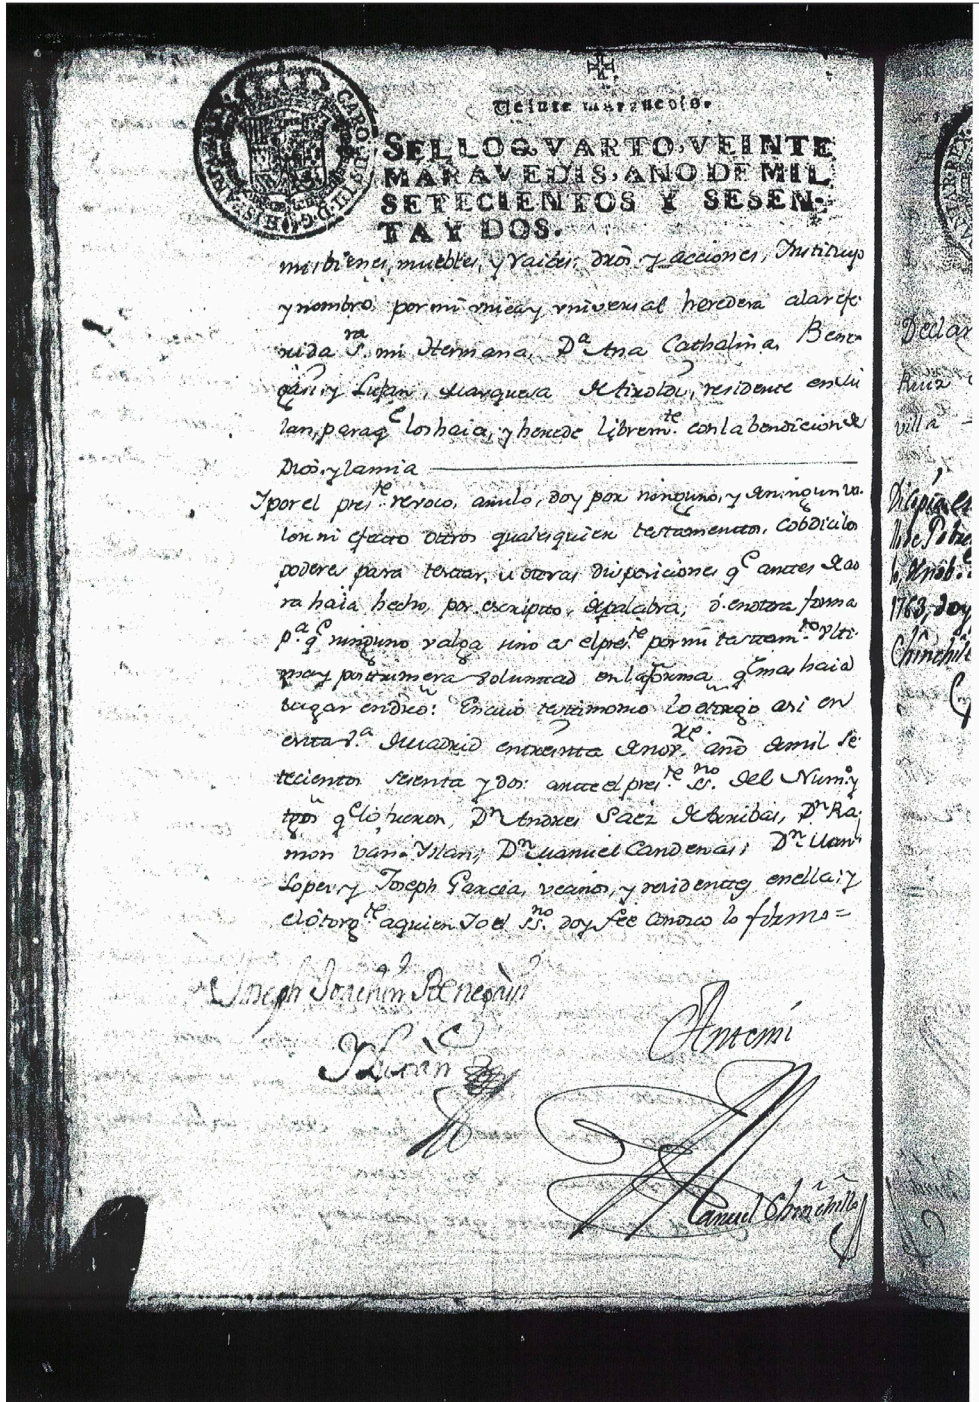 Veinte maravedis.
SELLO QVARTO, VEINTE
MARAVEDIS, AÑO DE MIL
SETECIENTOS Y SESEN-
TA Y DOS.
CAROLUS III D. G. HISPANIAR. REX
mis bienes, muebles, y raices, dros. y acciones, Instituyo
y nombro por mi unica y universal heredera a la refe-
rida Sra. mi Hermana, Da. Ana Cathalina
y Lujan, Marquesa de residente en Mi
lan, para qe. los haia, y herede libremte. con la bendicion de
Dios, y la mia
Y por el preste. revoco, anulo, doy por ninguno, y de ningun va-
lor ni efecto otros qualesquier testamentos, cobdicilos
poderes para testar, u otras disposiciones qe. antes de ao
ra haia hecho, por escripto, de palabra, ó en otra forma
pa. qe. ninguno valga sino es el preste. por mi testamto. Ulti
ma y postrimera voluntad en la forma qe. mas haia
lugar en dro: En cuio testimonio lo otorgo asi en
esta Va. de Madrid en treinta de Novre. año de mil se-
tecientos sesenta y dos: ante el preste. ssno. del Numo. y
tgos qe. lo fueron, Dn. Andres Saez de Arribas, Dn. Ra-
mon Dn. Manuel Candenas; Dn.
Lopez y Joseph Garcia, vecinos, y residentes en ella; y
el otorgte. a quien Yo el ssno. doy fee conozco lo firmo=
Joseph Joachin
Y Luxàn
Ante mi
Manuel Chinchilla
Declar
Ruiz
villa
1763, doy
Chinchill